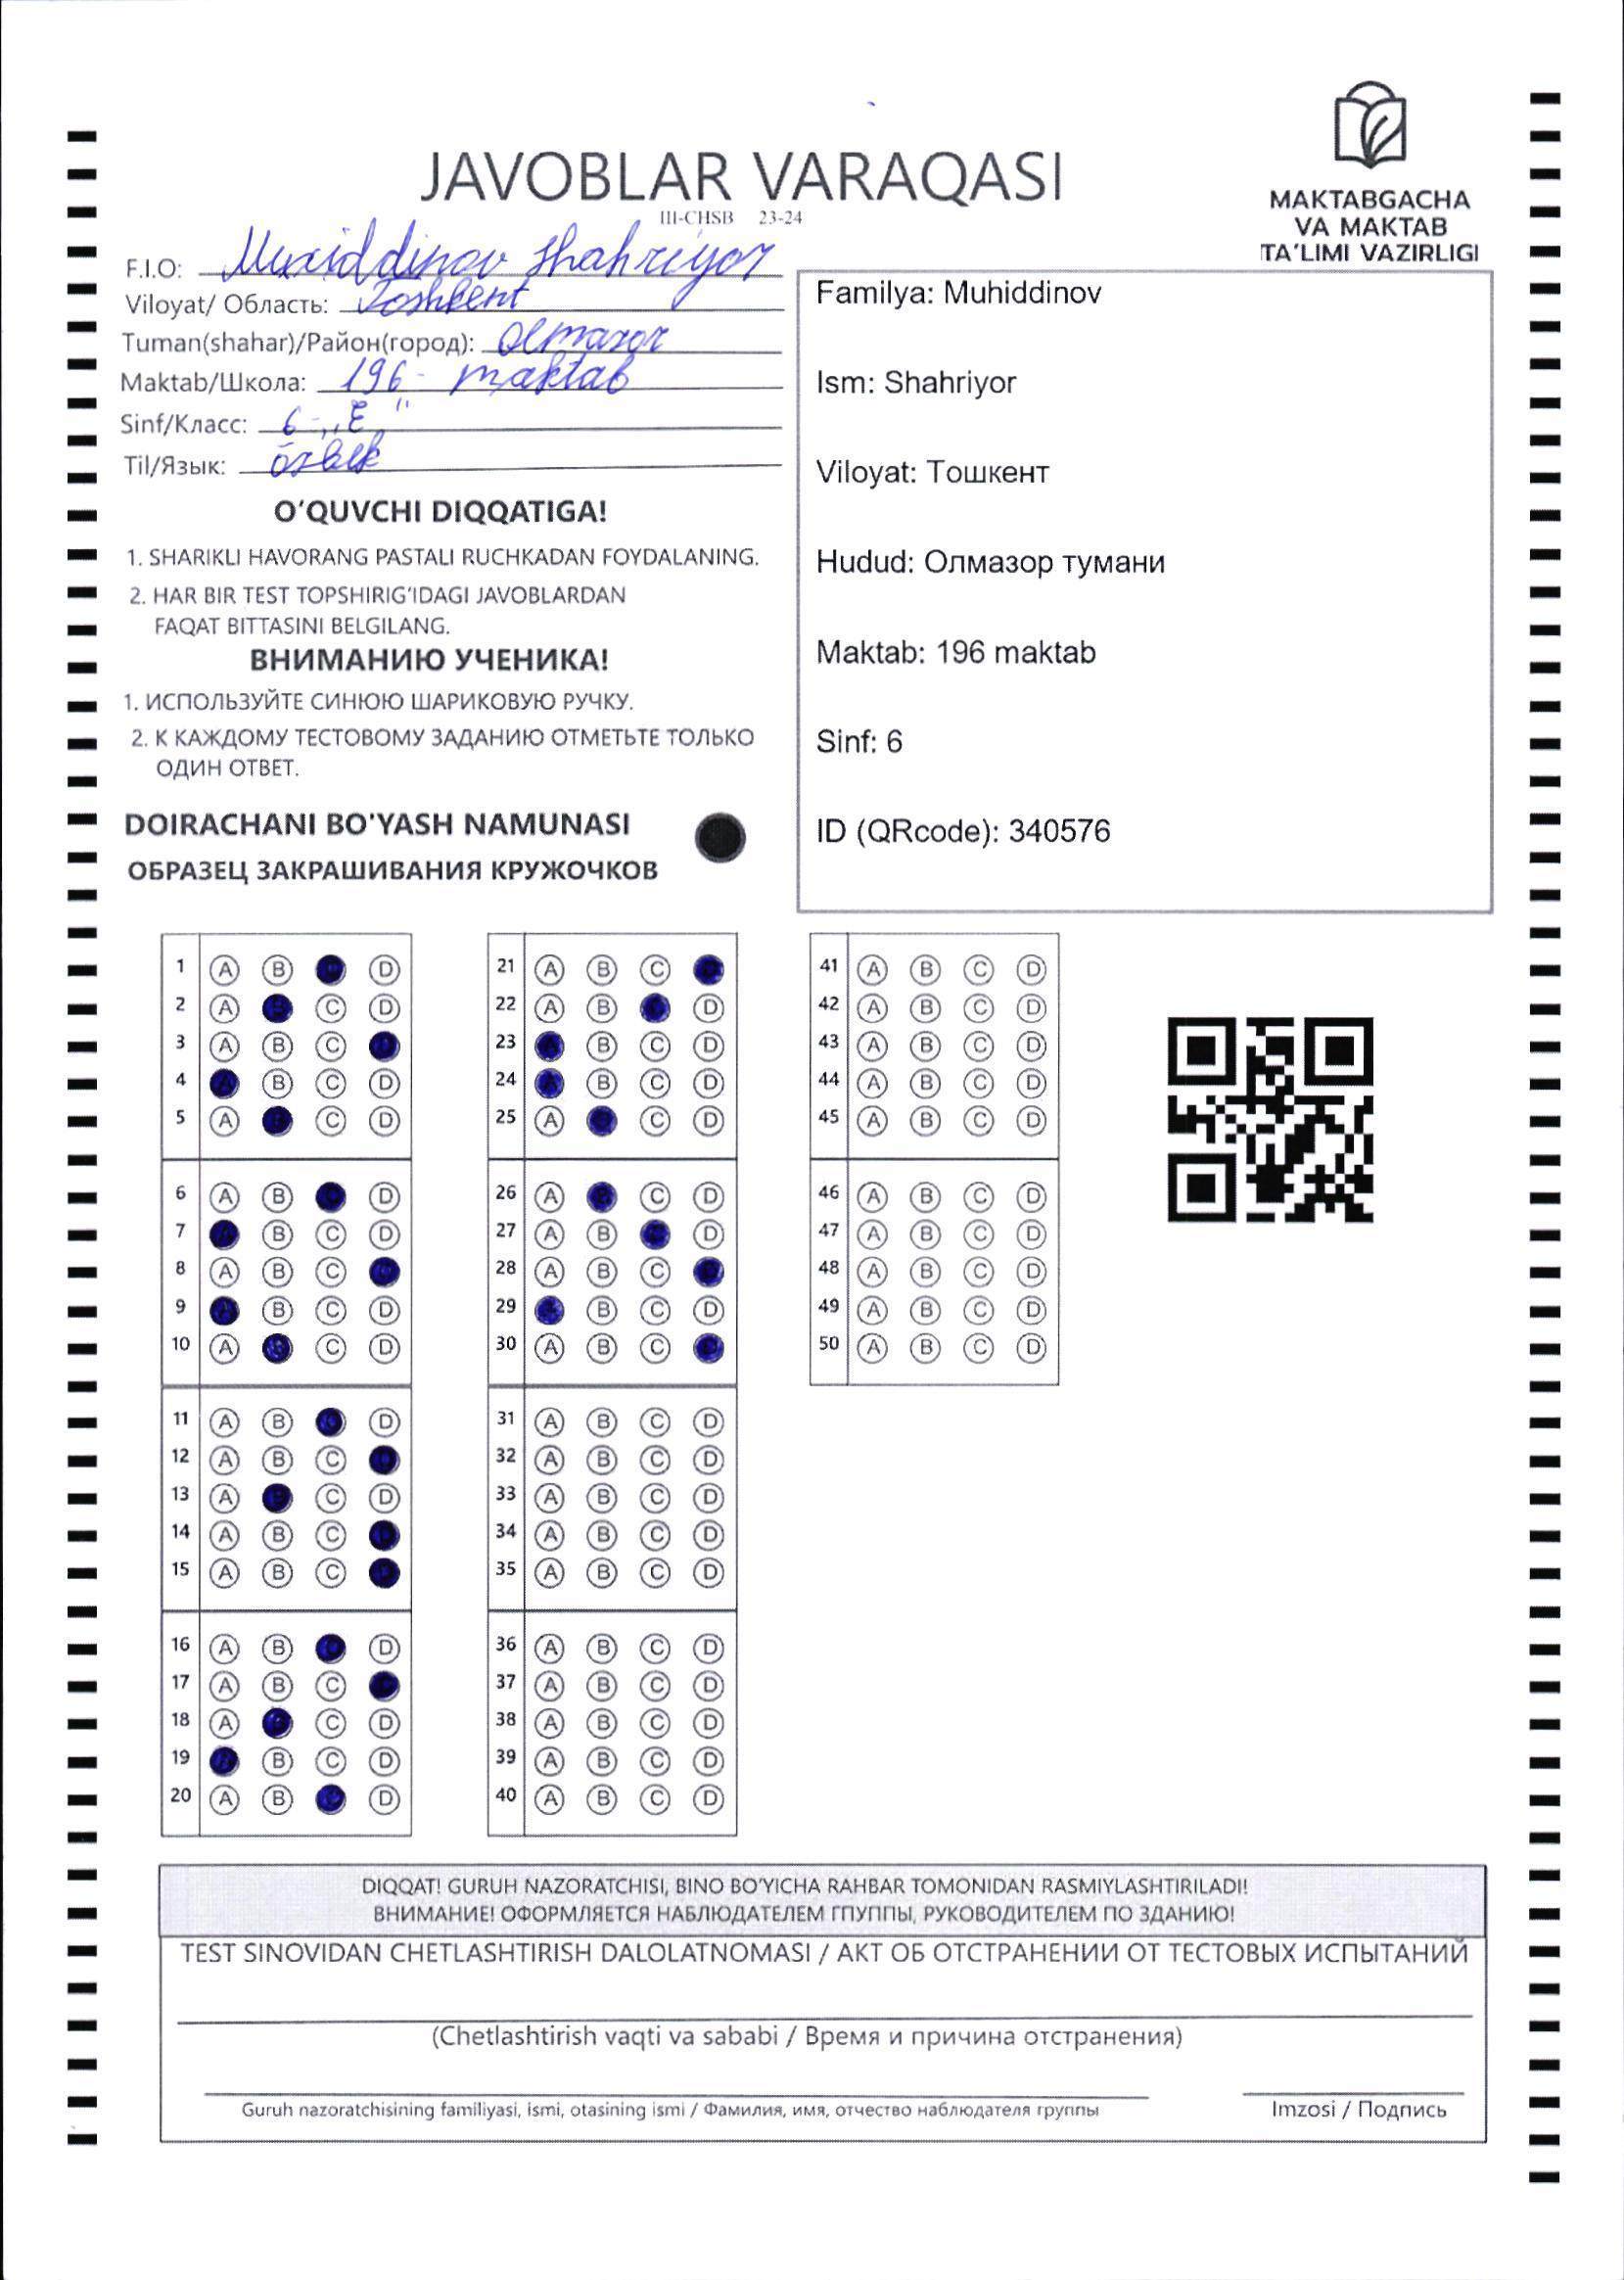 JAVOBLAR VARAQASI
III-CHSB 23-24
MAKTABGACHA
VA MAKTAB
TA'LIMI VAZIRLIGI
F.I.O: Muxiddinov Shahriyor
Viloyat/ Область: Toshkent
Tuman(shahar)/Район(город): Olmazor
Maktab/Школа: 196- maktab
Sinf/Класс: 6-,,E"
Til/Язык: õzbek
Familya: Muhiddinov
Ism: Shahriyor
Viloyat: Тошкент
Hudud: Олмазор тумани
Maktab: 196 maktab
Sinf: 6
ID (QRcode): 340576
O'QUVCHI DIQQATIGA!
1. SHARIKLI HAVORANG PASTALI RUCHKADAN FOYDALANING.
2. HAR BIR TEST TOPSHIRIG'IDAGI JAVOBLARDAN
FAQAT BITTASINI BELGILANG.
ВНИМАНИЮ УЧЕНИКА!
1. ИСПОЛЬЗУЙТЕ СИНЮЮ ШАРИКОВУЮ РУЧКУ.
2. К КАЖДОМУ ТЕСТОВОМУ ЗАДАНИЮ ОТМЕТЬТЕ ТОЛЬКО
ОДИН ОТВЕТ.
DOIRACHANI BO'YASH NAMUNASI
ОБРАЗЕЦ ЗАКРАШИВАНИЯ КРУЖОЧКОВ
1 A B D
2 A C D
3 A B C
4 B C D
5 A C D
6 A B D
7 B C D
8 A B C
9 B C D
10 A C D
11 A B D
12 A B C
13 A C D
14 A B C
15 A B C
16 A B D
17 A B C
18 A C D
19 B C D
20 A B D
21 A B C
22 A B D
23 A B C D
24 A B C D
25 A C D
26 A C D
27 A B D
28 A B C
29 B C D
30 A B C
31 A B C D
32 A B C D
33 A B C D
34 A B C D
35 A B C D
36 A B C D
37 A B C D
38 A B C D
39 A B C D
40 A B C D
41 A B C D
42 A B C D
43 A B C D
44 A B C D
45 A B C D
46 A B C D
47 A B C D
48 A B C D
49 A B C D
50 A B C D
DIQQAT! GURUH NAZORATCHISI, BINO BO'YICHA RAHBAR TOMONIDAN RASMIYLASHTIRILADI!
ВНИМАНИЕ! ОФОРМЛЯЕТСЯ НАБЛЮДАТЕЛЕМ ГПУППЫ, РУКОВОДИТЕЛЕМ ПО ЗДАНИЮ!
TEST SINOVIDAN CHETLASHTIRISH DALOLATNOMASI / АКТ ОБ ОТСТРАНЕНИИ ОТ ТЕСТОВЫХ ИСПЫТАНИЙ
(Chetlashtirish vaqti va sababi / Время и причина отстранения)
Guruh nazoratchisining familiyasi, ismi, otasining ismi / Фамилия, имя, отчество наблюдателя группы
Imzosi / Подпись